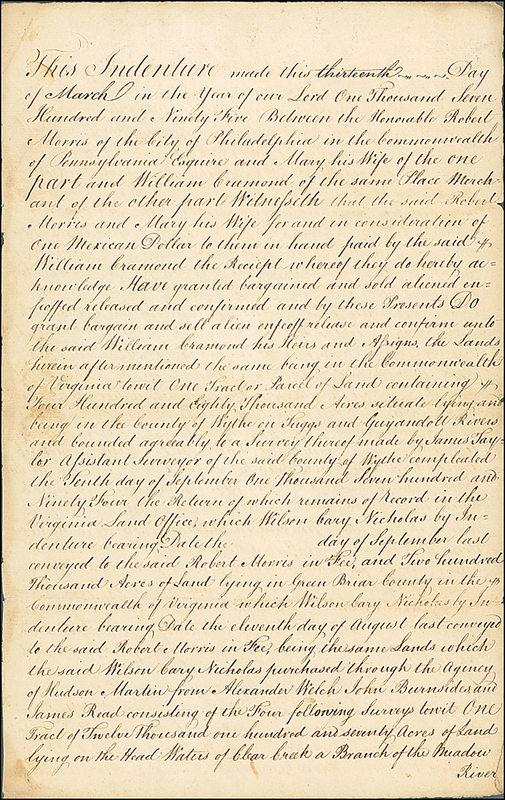 This Indenture made this thirteenth Day
of March in the Year of our Lord One Thousand Seven
Hundred and Ninety Five Between the Honorable Robert
Morris of the City of Philadelphia in the Commonwealth
of Pennsylvania Esquire and Mary his Wife of the one
part and William Cramond of the same Place Merch-
ant of the other part Witnesseth that the said Robert
Morris and Mary his Wife for and in consideration of
One Mexican Dollar to them in hand paid by the said
William Cramond the Reciept whereof they do hereby ac=
knowledge Have granted bargained and sold aliened en=
feoffed released and confirmed and by these Presents Do
grant bargain and sell alien enfeoff release and confirm unto
the said William Cramond his Heirs and Assigns the Lands
herein after mentioned the same being in the Commonwealth
of Virginia towit One Tract or Parcel of Land containing
Four Hundred and Eighty Thousand Acres situate lying and
being in the County of Wythe on Tuggs and Guyandott Rivers
and bounded agreably to a Survey thereof made by James Tay-
lor Assistant Surveyor of the said County of Wythe compleated
the Tenth day of September One Thousand Seven hundred and
Ninety Four the Return of which remains of Record in the
Virginia Land Office, which Wilson Cary Nicholas by In-
denture bearing Date the day of September last
conveyed to the said Robert Morris in Fee, and Two hundred
Thousand Acres of Land lying in Green Briar County in the
Commonwealth of Virginia which Wilson Cary Nicholas by In-
denture bearing Date the eleventh day of August last conveyed
to the said Robert Morris in Fee, being the same Lands which
the said Wilson Cary Nicholas purchased through the Agency
of Hudson Martin from Alexander Welch John Burnsides and
James Read consisting of the Four following Surveys towit One
Tract of Twelve Thousand one hundred and seventy Acres of Land
lying on the Head Waters of Clear Creek a Branch of the Meadow
River